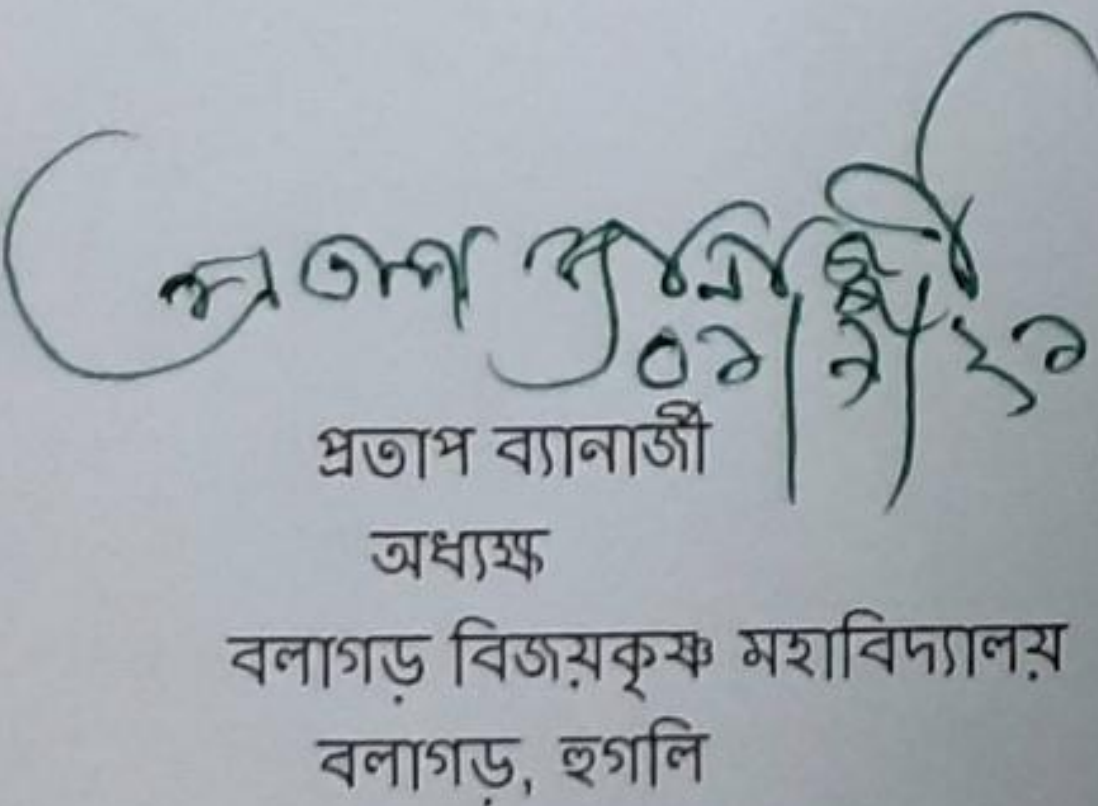 প্রতাপ ব্যানার্জী
প্রতাপ ব্যানার্জী
অধ্যক্ষ
বলাগড় বিজয়কৃষ্ণ মহাবিদ্যালয়
বলাগড়, হুগলি